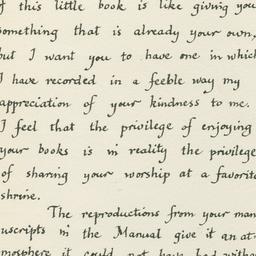 f this little book is like giving you
something that is already your own,
but I want you to have one in which
I have recorded in a feeble way my
appreciation of your kindness to me.
I feel that the privilege of enjoying
your books is in reality the privilege
of sharing your worship at a favorite
shrine.
The reproductions from your man
uscripts in the Manual give it an at-
mosphere it could not have had witho